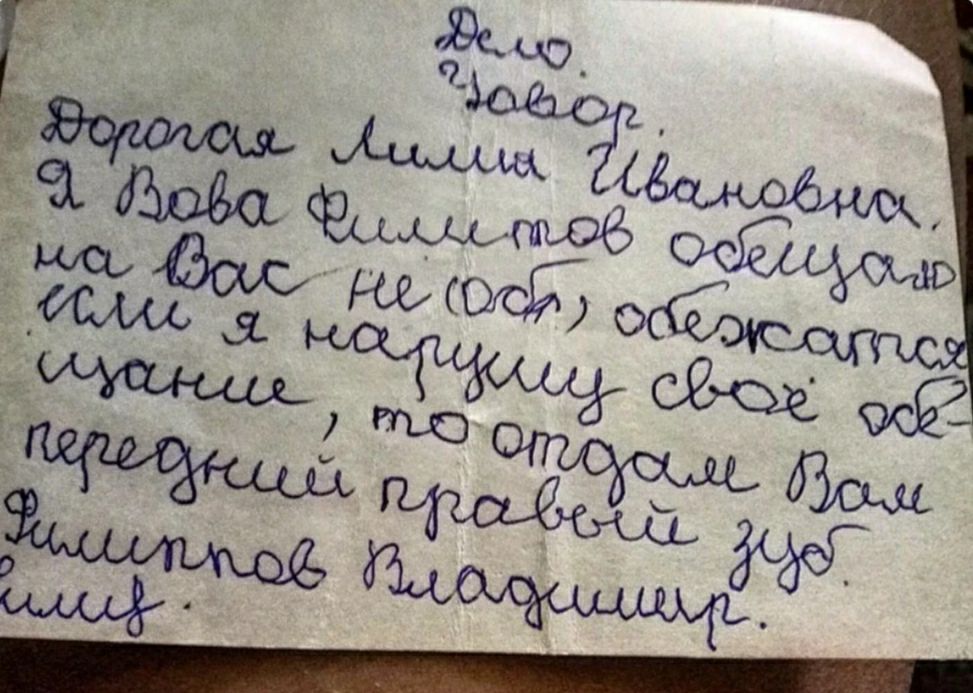 Дело.
Уовор.
Дорогая Лилия Ивановна.
Я Вова Филипов обещаю
на Вас не (обл) обежатся
если я нарушу своё обе-
щание, то отдам Вам
передний правый зуб.
Филиппов Владимир.